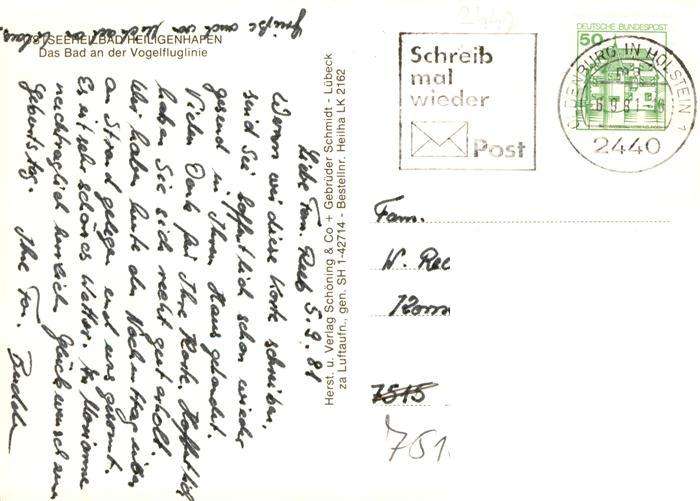 OSTSEEHEILBAD HEILIGENHAFEN
Das Bad an der Vogelfluglinie
5.9.81
Liebe Fam.
Wenn wir diese Karte schreiben,
sind Sie hoffentlich schon wieder
gesund in Ihrem Haus gelandet.
Vielen Dank für Ihre Karte. Hoffentlich
haben Sie sich recht gut erholt.
Wir haben heute den Nachmittag über
am Strand gelegen und uns gesonnt.
Es ist sehr schönes Wetter. Ihr Marianne
nachträglich herzlich Glückwunsch zum
Geburtstag. Ihre Fam.
Grüße auch von
Herst. u. Verlag Schöning & Co + Gebrüder Schmidt - Lübeck
za Luftaufn., gen. SH 1-42714 - Bestellnr. Heilha LK 2162
2440
Schreib
mal
wieder
Post
DEUTSCHE BUNDESPOST
50
OLDENBURG IN HOLSTEIN 1
ma
6.9.81
2440
Fam.
W. Ree
Rom
7515
751